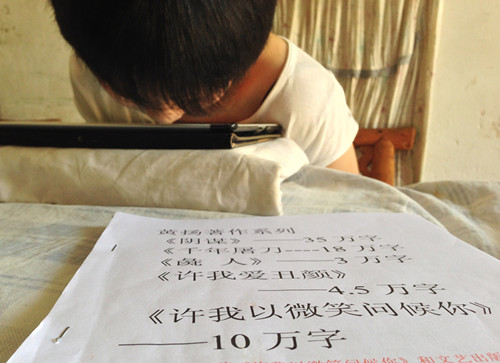 黄扬著作系列
《阴谋》——35 万字
《千年屠刀----16 万字
《毳 人》——3 万字
《许我爱丑颜》
——4.5 万字
《许我以微笑问候你》
——10 万字